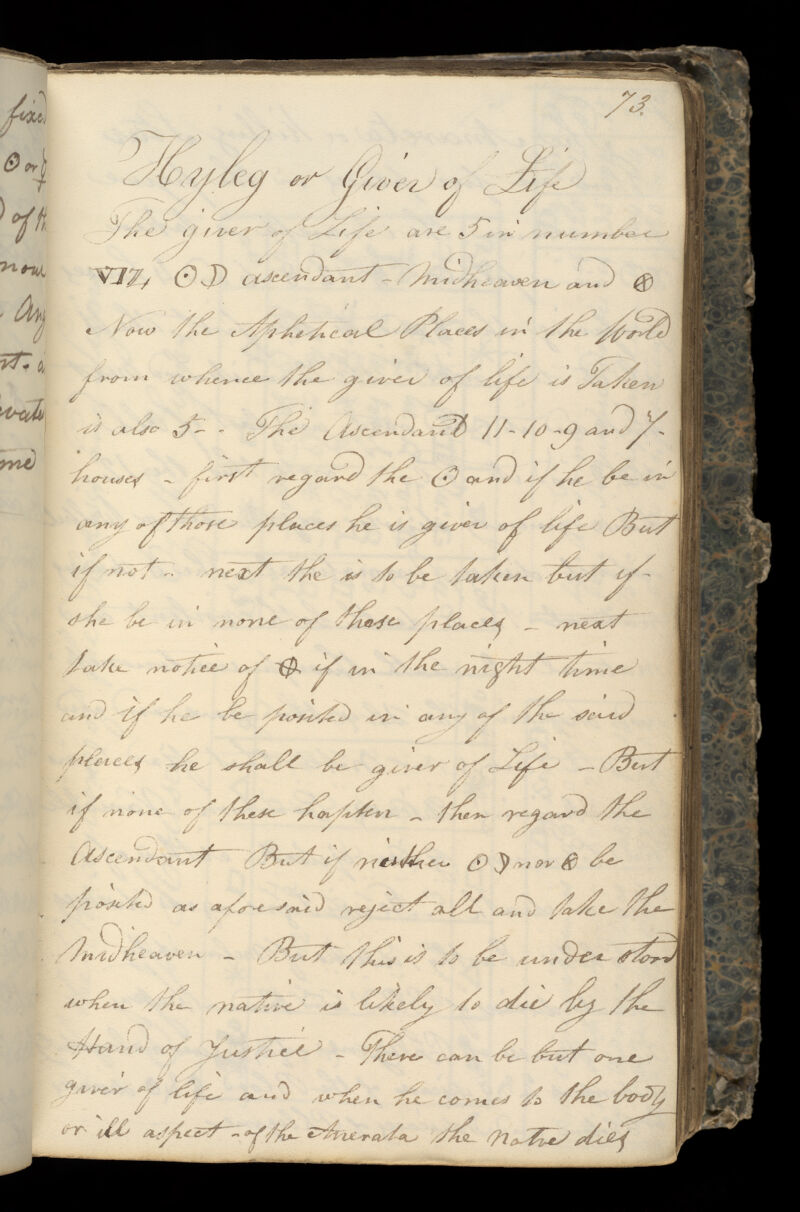 fixed
☉ or ☿
of th
nour
Any
st. a
evate
me
73.
Hyleg or Giver of Life
The giver of Life are 5 in number
VIZ, ☉ ☽ ascendant - Midheaven and ⊗
Now the Aphetical Places in the World
from whence the giver of life is Taken
is also 5 - - The Ascendant 11 - 10 - 9 and 7 -
houses - first regard the ☉ and if he be in
any of those places he is giver of life But
if not - next the is to be taken but if -
she be in none of these places - next
take notice of ⊗ if in the night time
and if he be posited in any of the said
places he shall be giver of Life - But
if none of these happen - then regard the
Ascendant But if neither ☉ ☽ nor ⊗ be
posited as aforesaid reject all and take the
Midheaven - But this is to be under stood
when the native is likely to die by the
Hand of Justice - There can be but one
giver of life and when he comes to the body
or ill aspect - of the Anerata the native dies